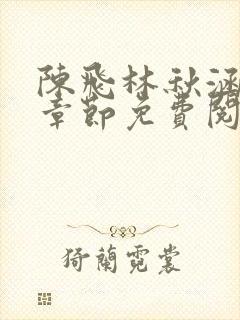 陳飛林秋涵
章節免費閱
猗蘭霓裳